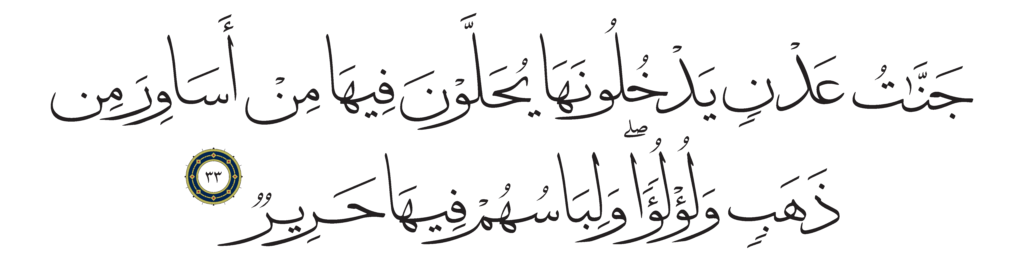 جَنَّٰتُ عَدْنٍ يَدْخُلُونَهَا يُحَلَّوْنَ فِيهَا مِنْ أَسَاوِرَ مِن
ذَهَبٍ وَلُؤْلُؤًاۖ وَلِبَاسُهُمْ فِيهَا حَرِيرٌ ٣٣